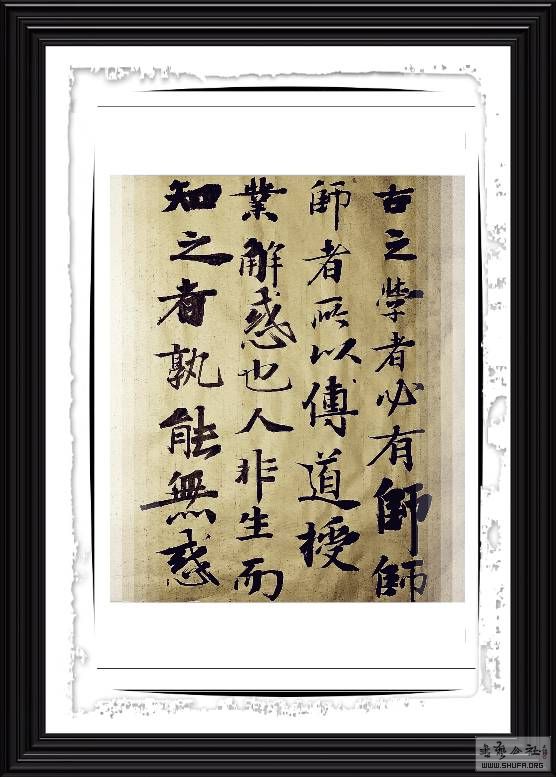 古之學者必有師師
師者所以傳道授
業解惑也人非生而
知之者孰能無惑
WWW.SHUFA.ORG